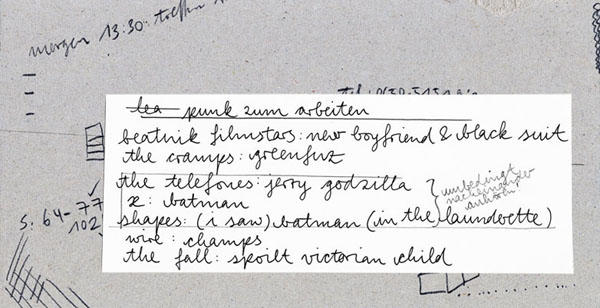 morgen 13:30 treffen
punk zum arbeiten
beatnik filmstars: new boyfriend & black suit
the cramps: greenfuz
the telefones: jerry godzilla
x: batman
unbedingt
nacheinander
anhören
shapes: (i saw) batman (in the laundrette)
s. 64-77
102
wire: champs
the fall: spoilt victorian child